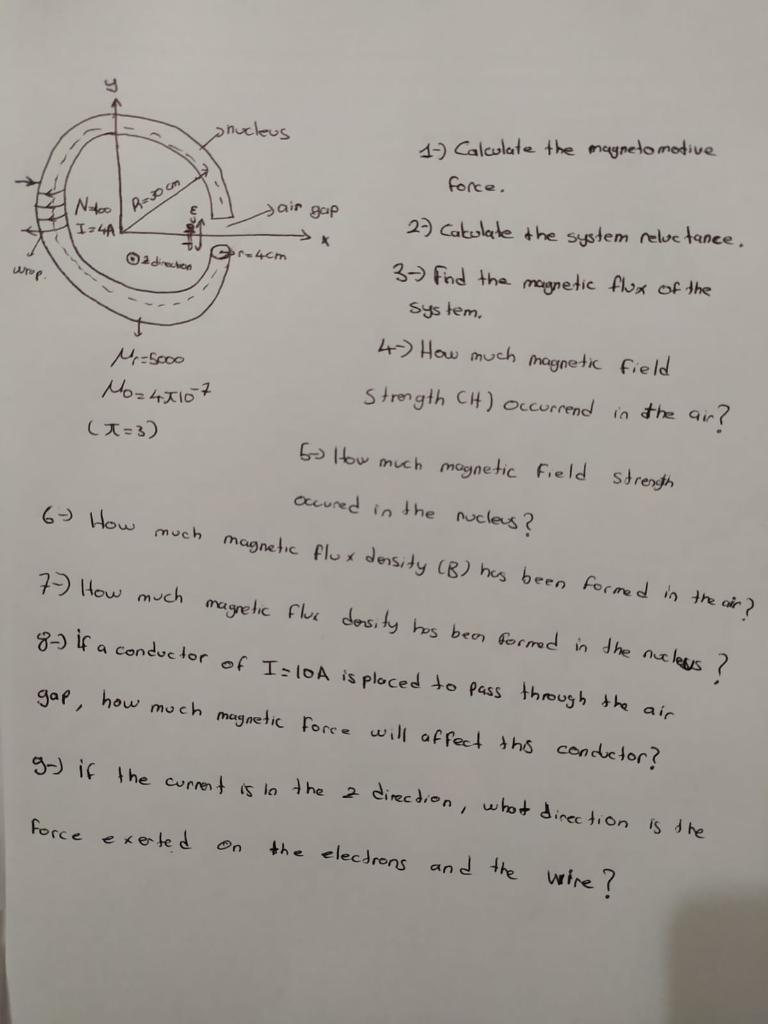 y
nucleus
R=30cm
N=400
I=4A
air gap
x
r=4cm
2 direction
wrop.
μr=5000
μ0=4π10-7
(π=3)
1-) Calculate the magnetomotive
force.
2-) Calculate the system reluctance.
3-) Find the magnetic flux of the
system.
4-) How much magnetic field
strength (H) occurrend in the air?
5-) How much magnetic field strength
occured in the nucleus?
6-) How much magnetic flux density (B) has been formed in the air?
7-) How much magnetic flux density has been formed in the nucleus?
8-) if a conductor of I=10A is placed to pass through the air
gap, how much magnetic force will affect this conductor?
9-) if the current is in the 2 direction, what direction is the
force exerted on the electrons and the wire?